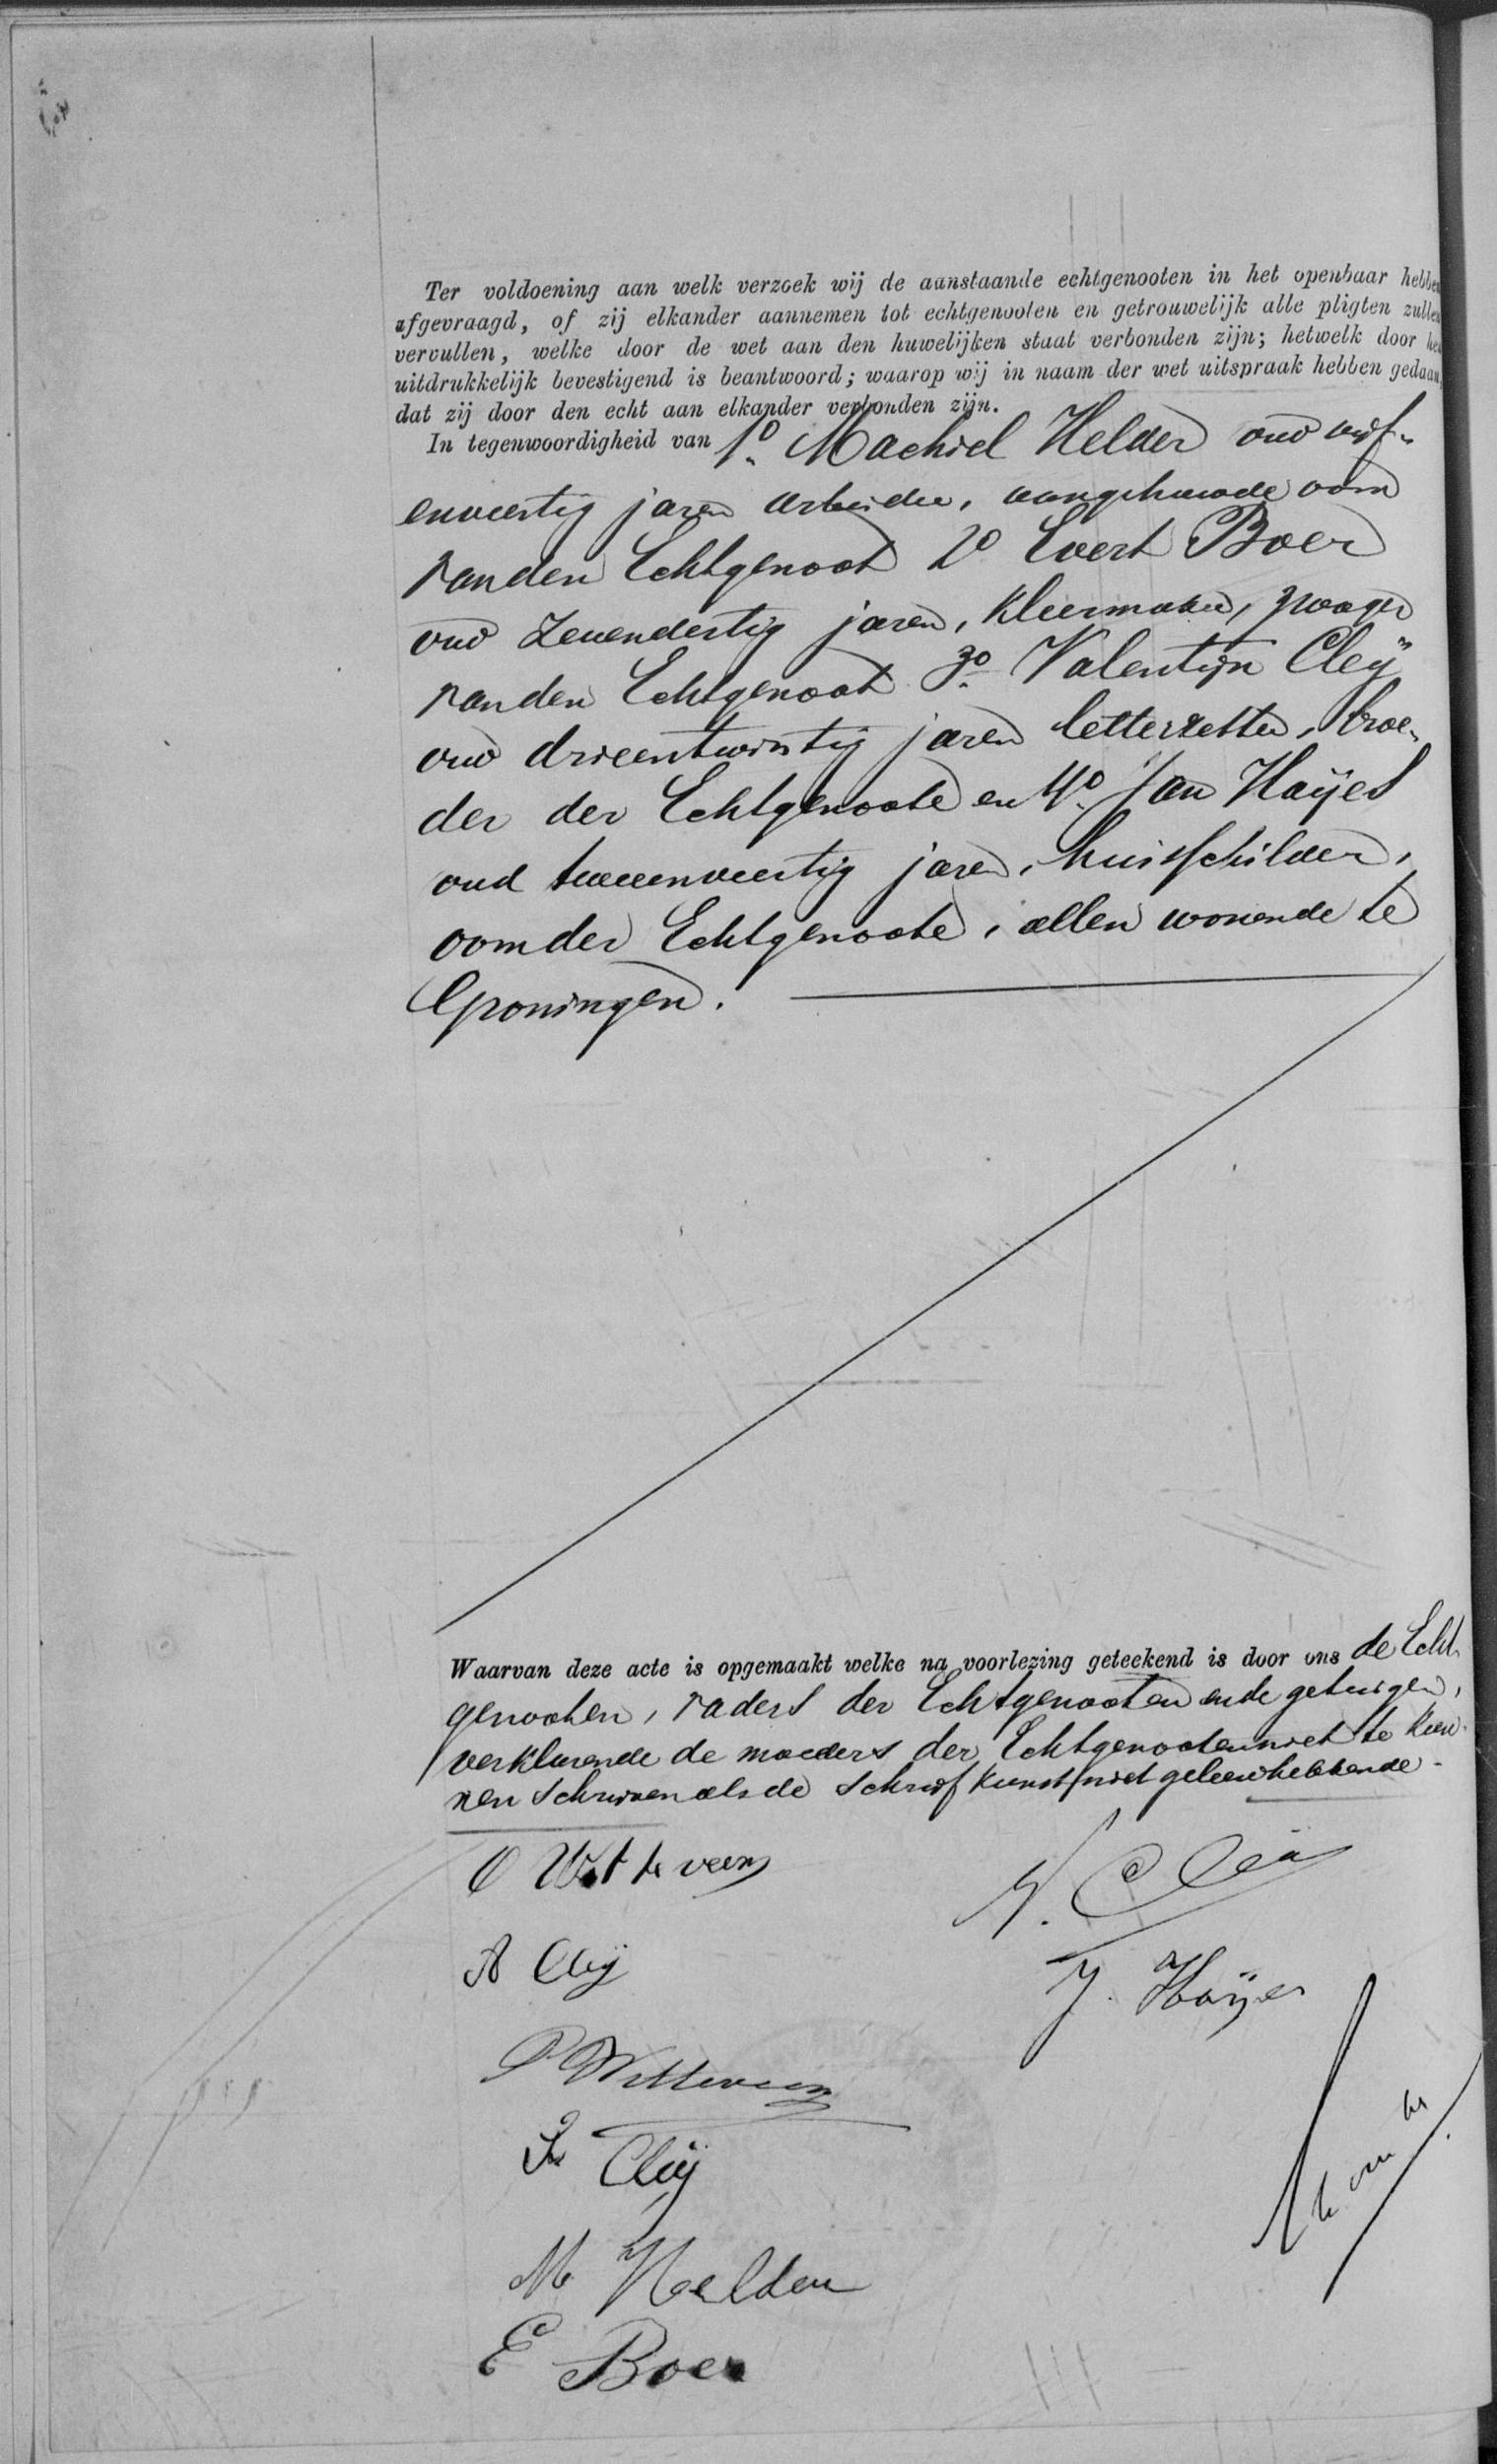 Ter voldoening aan welk verzoek wij de aanstaande echtgenooten in het openbaar hebben
afgevraagd, of zij elkander aannemen tot echtgenooten en getrouwelijk alle pligten zullen
vervullen, welke door de wet aan den huwelijken staat verbonden zijn; hetwelk door hen
uitdrukkelijk bevestigend is beantwoord; waarop wij in naam der wet uitspraak hebben gedaan,
dat zij door den echt aan elkander verbonden zijn.
In tegenwoordigheid van 1o. Machiel Helder oud vijf-
enveertig jaren arbeider, aangehuwde oom
van den Echtgenoot 2o Evert Boer
oud Zevendertig jaren, kleermaker, zwager
van den Echtgenoot 3o. Valentijn Cleÿ
oud drieentwintig jaren letterzetter, broe-
der der Echtgenoote en 4o. Jan Haÿes
oud tweeenveertig jaren, huisschilder,
oom der Echtgenoote, allen wonende te
Groningen.
Waarvan deze acte is opgemaakt welke na voorlezing geteekend is door ons de Echt-
genooten, vaders der Echtgenooten en de getuigen,
verklarende de moeders der Echtgenooten niet te kun-
nen schrijven als de schrijfkunst niet geleerd hebbende.
O Witteveen
V. Cleÿ
A Cleÿ
J. Haÿes
P Witteveen
Cleÿ
M Helder
E Boer